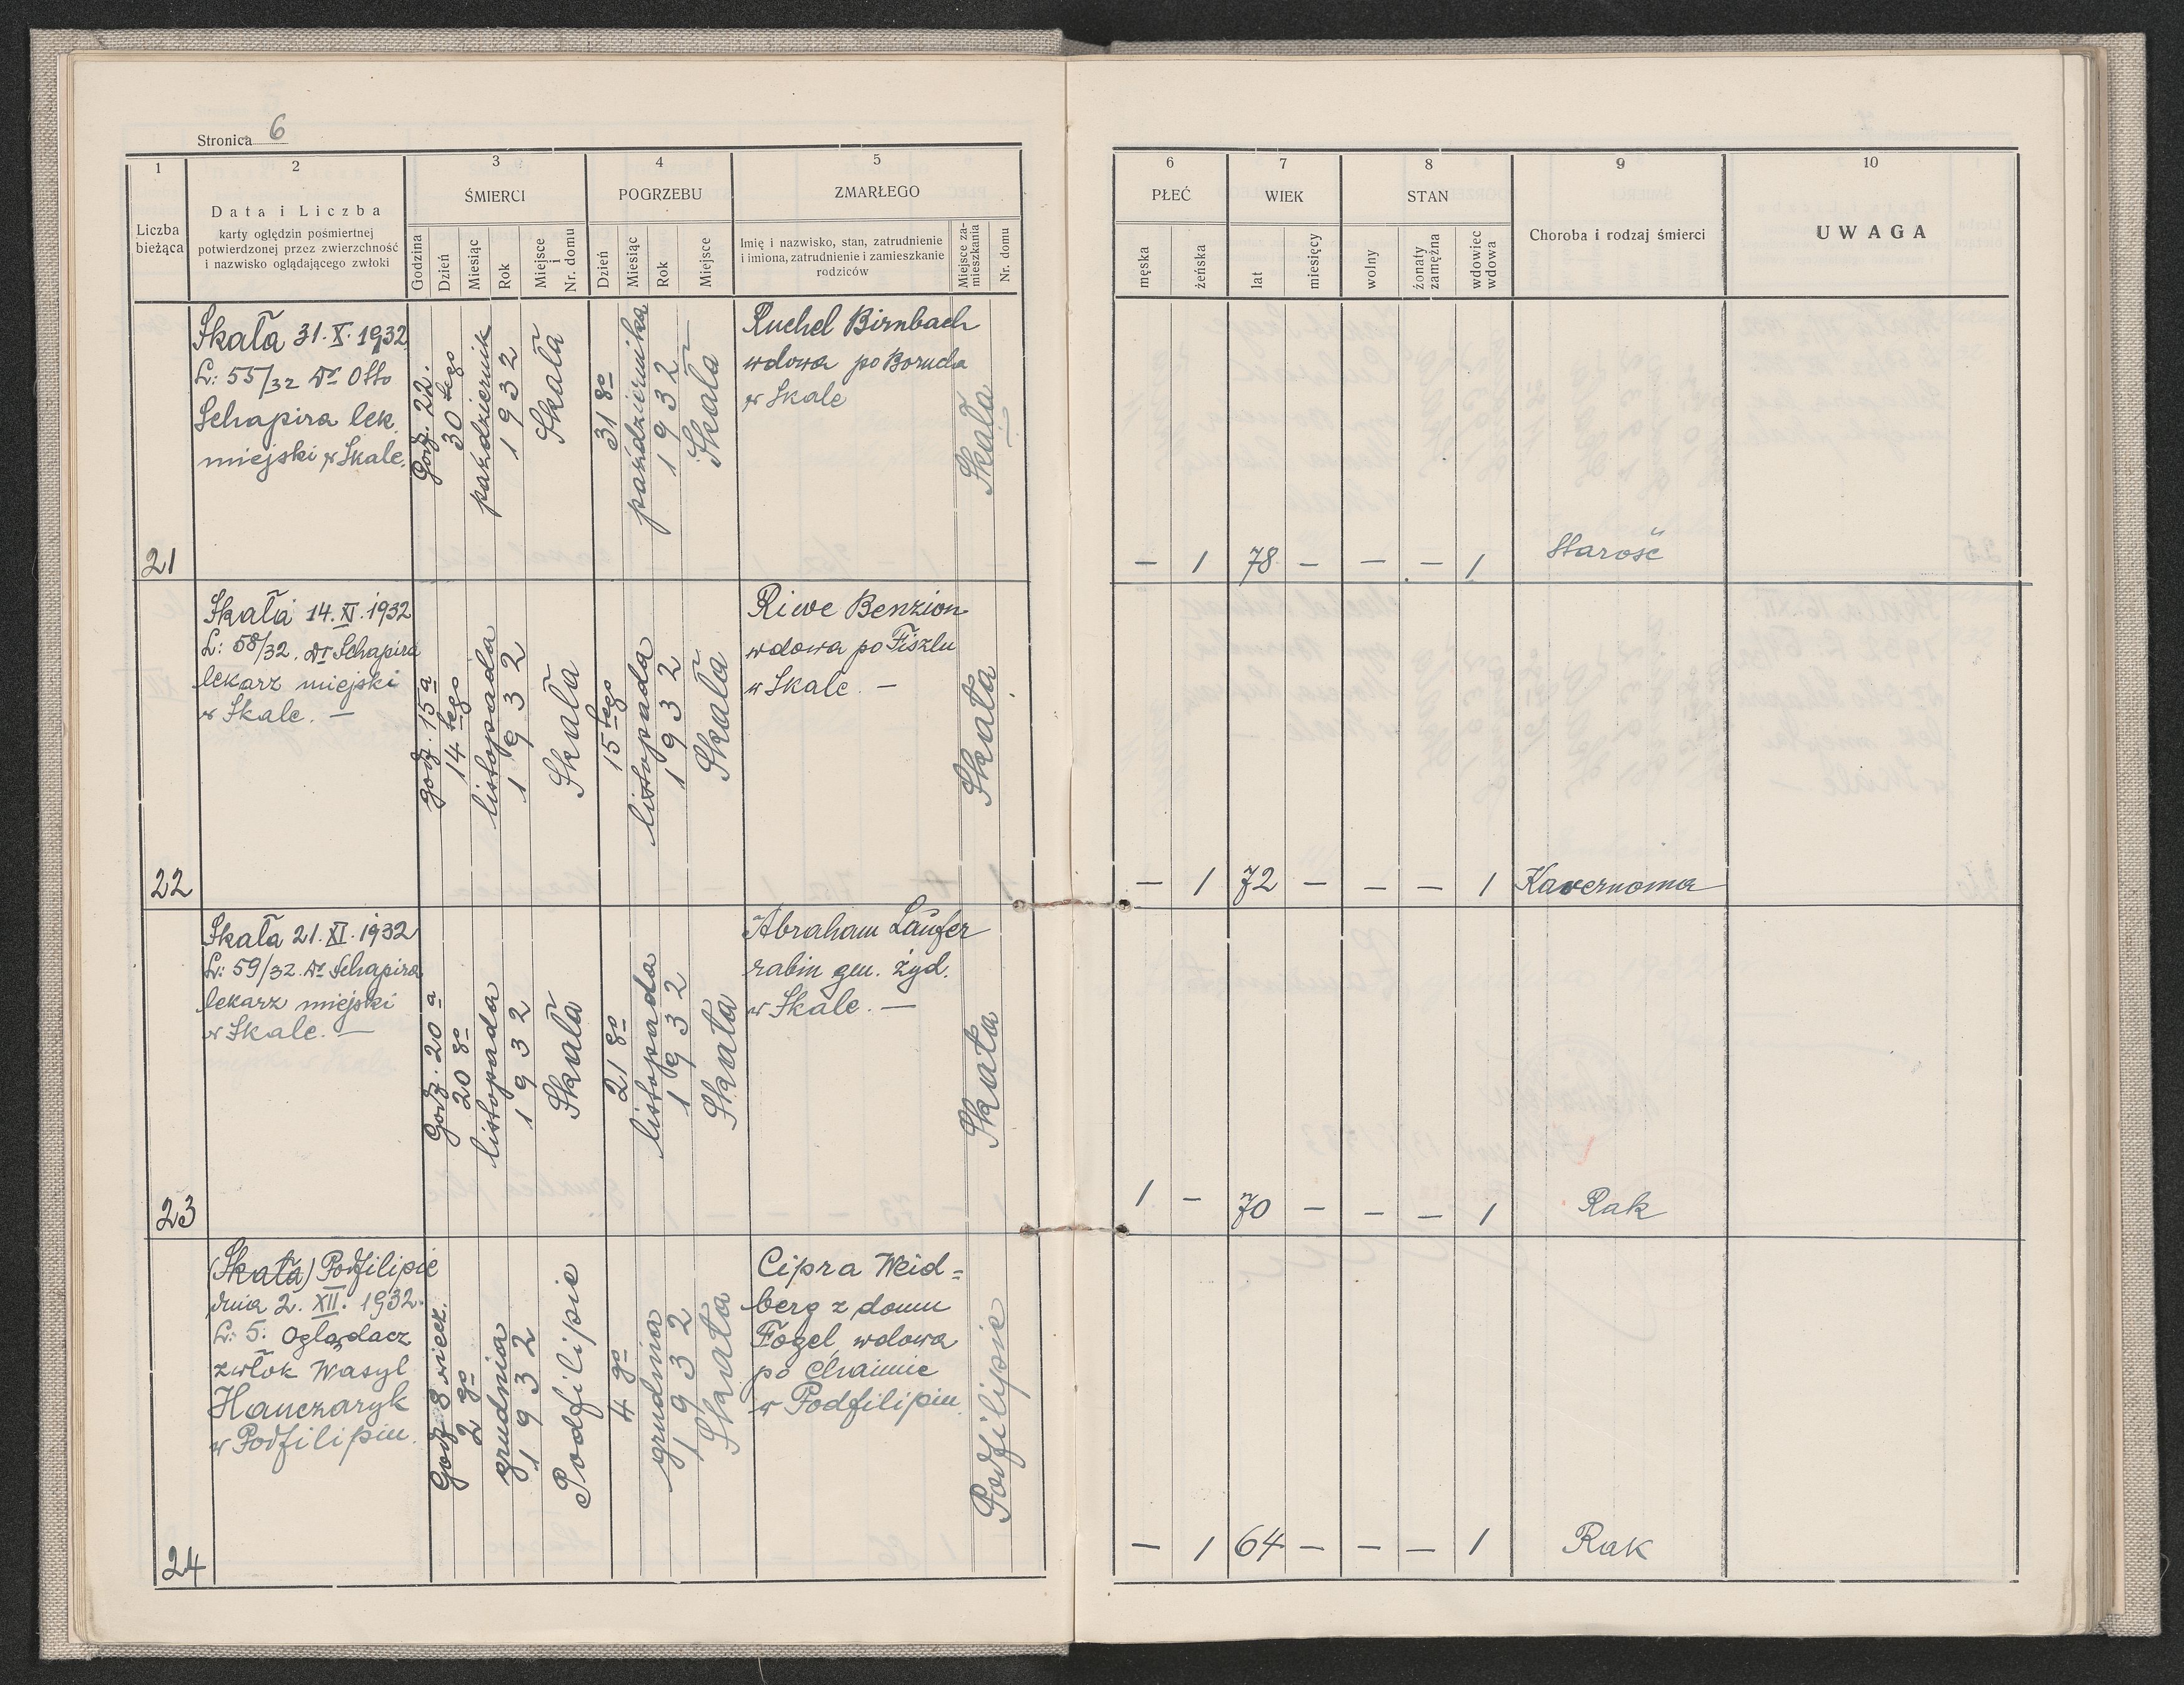 Stronica 6
1 2 3 4 5 6 7 8 9 10
Liczba bieżąca
Data i Liczba
karty oględzin pośmiertnej
potwierdzonej przez zwierzchność
i nazwisko oglądającego zwłoki
ŚMIERCI
Godzina Dzień Miesiąc Rok Miejsce i Nr. domu
POGRZEBU
Dzień Miesiąc Rok Miejsce
ZMARŁEGO
Imię i nazwisko, stan, zatrudnienie
i imiona, zatrudnienie i zamieszkanie
rodziców
Miejsce za-
mieszkania
Nr. domu
PŁEĆ
męska żeńska
WIEK
lat miesięcy
STAN
wolny
żonaty zamężna
wdowiec wdowa
Choroba i rodzaj śmierci
UWAGA
21
Skała 31.X.1932
L: 55/32 Dr Otto
Schapira lek.
miejski w Skale.
Godz. 22.
30 tego
październik
1932
Skała
31 go
października
1932
Skała
Ruchel Birnbach
wdowa po Boruchu
w Skale
Skała
— 1 78 — — — 1 Starość
22
Skała 14.XI.1932
L: 58/32. Dr Schapira
lekarz miejski
w Skale. —
godz. 15 a
14 tego
listopada
1932
Skała
15 tego
listopada
1932
Skała
Riwe Benzion
wdowa po Fiszlu
w Skale. —
Skała
— 1 72 — — — 1 Kavernoma
23
Skała 21.XI.1932
L: 59/32 Dr Schapira
lekarz miejski
w Skale. —
Godz. 20 a
20 go
listopada
1932
Skała
21 go
listopada
1932
Skała
Abraham Laufer
rabin gm. żyd.
w Skale. —
Skała
1 — 70 — — — 1 Rak
24
(Skała) Podfilipie
dnia 2. XII. 1932.
L: 5. Oglądacz
zwłok Wasyl
Hanczaryk
w Podfilipiu.
Godz 8 wiecz.
2 go
grudnia
1932
Podfilipie
4 go
grudnia
1932
Skała
Cipra Weid=
berg z domu
Fogel, wdowa
po Chaimie
w Podfilipiu.
Podfilipie
— 1 64 — — — 1 Rak